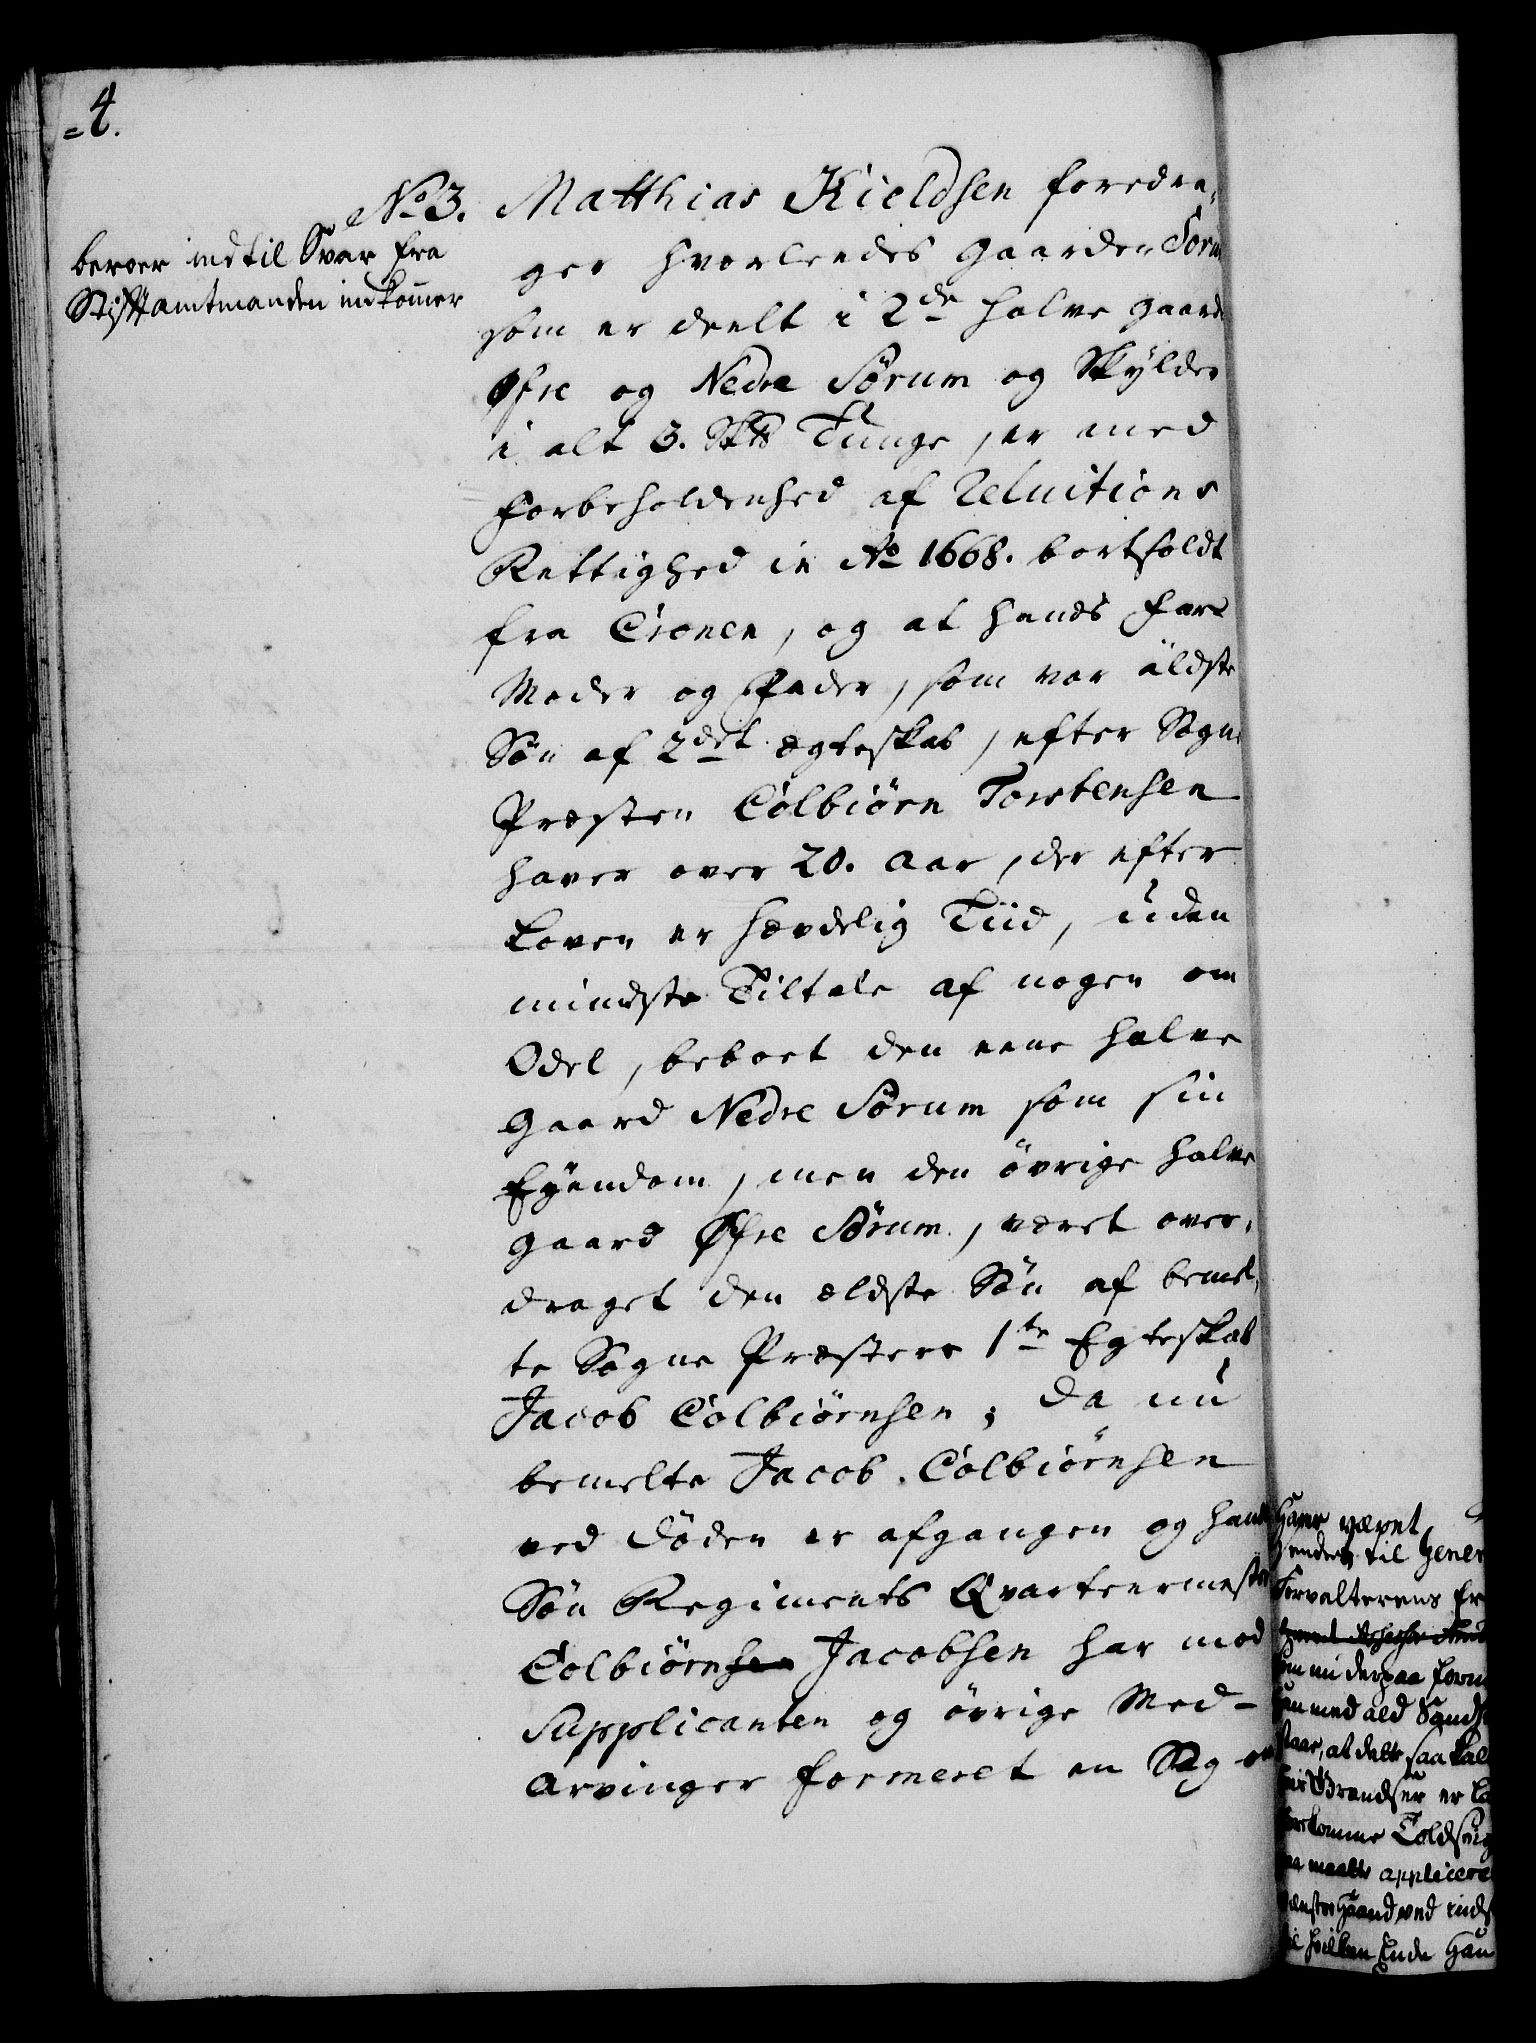 =4.
No 3. Matthias Kieldsen foredra,
beroer indtil Svar fra
Stiftamtmanden indkom̄er
ger hvorleedes Gaarden Sørum
som er deelt i 2de halve gaarde
Øfre og Nedre Sørum og Skylder
i alt 3. Skd Tunge, er med
forbeholdenhed af Reluitions
Rettighed in Ao 1668. bortsoldt
fra Cronen, og at hands Far¬
Moder og Fader, som var äldste
Søn af 2det ægteskab, efter Sogne
Præsten Colbiörn Torstensen
haver over 20. Aar, der efter
Loven er hævdelig Tiid, uden
mindste Tiltale af nogen om
Odel, beboet den eene halve
Gaard Nedre Sørum som sin
Eyendom, men den övrige halve
gaard Øfre Sørum, været over,
draget den ældste Sön af bemel,
te Sogne Præstes 1te Egteskab
Jacob Colbiörnsen; da nu
bemelte Jacob Colbiörnsen
ved Döden er afgangen og hands
Sön Regiments Qvarteermester
Colbiörnsen Jacobsen har mod
Supplicanten og övrige Med-
Arvinger formeret en Sag om
Haver været
hendes til Gener
Forvalterens Er
som nu derpaa form
med ald
at dette saa kal
Grændser er
komme Toldsug
maatte applicere
Haand ved inds
hvilken Ende Han